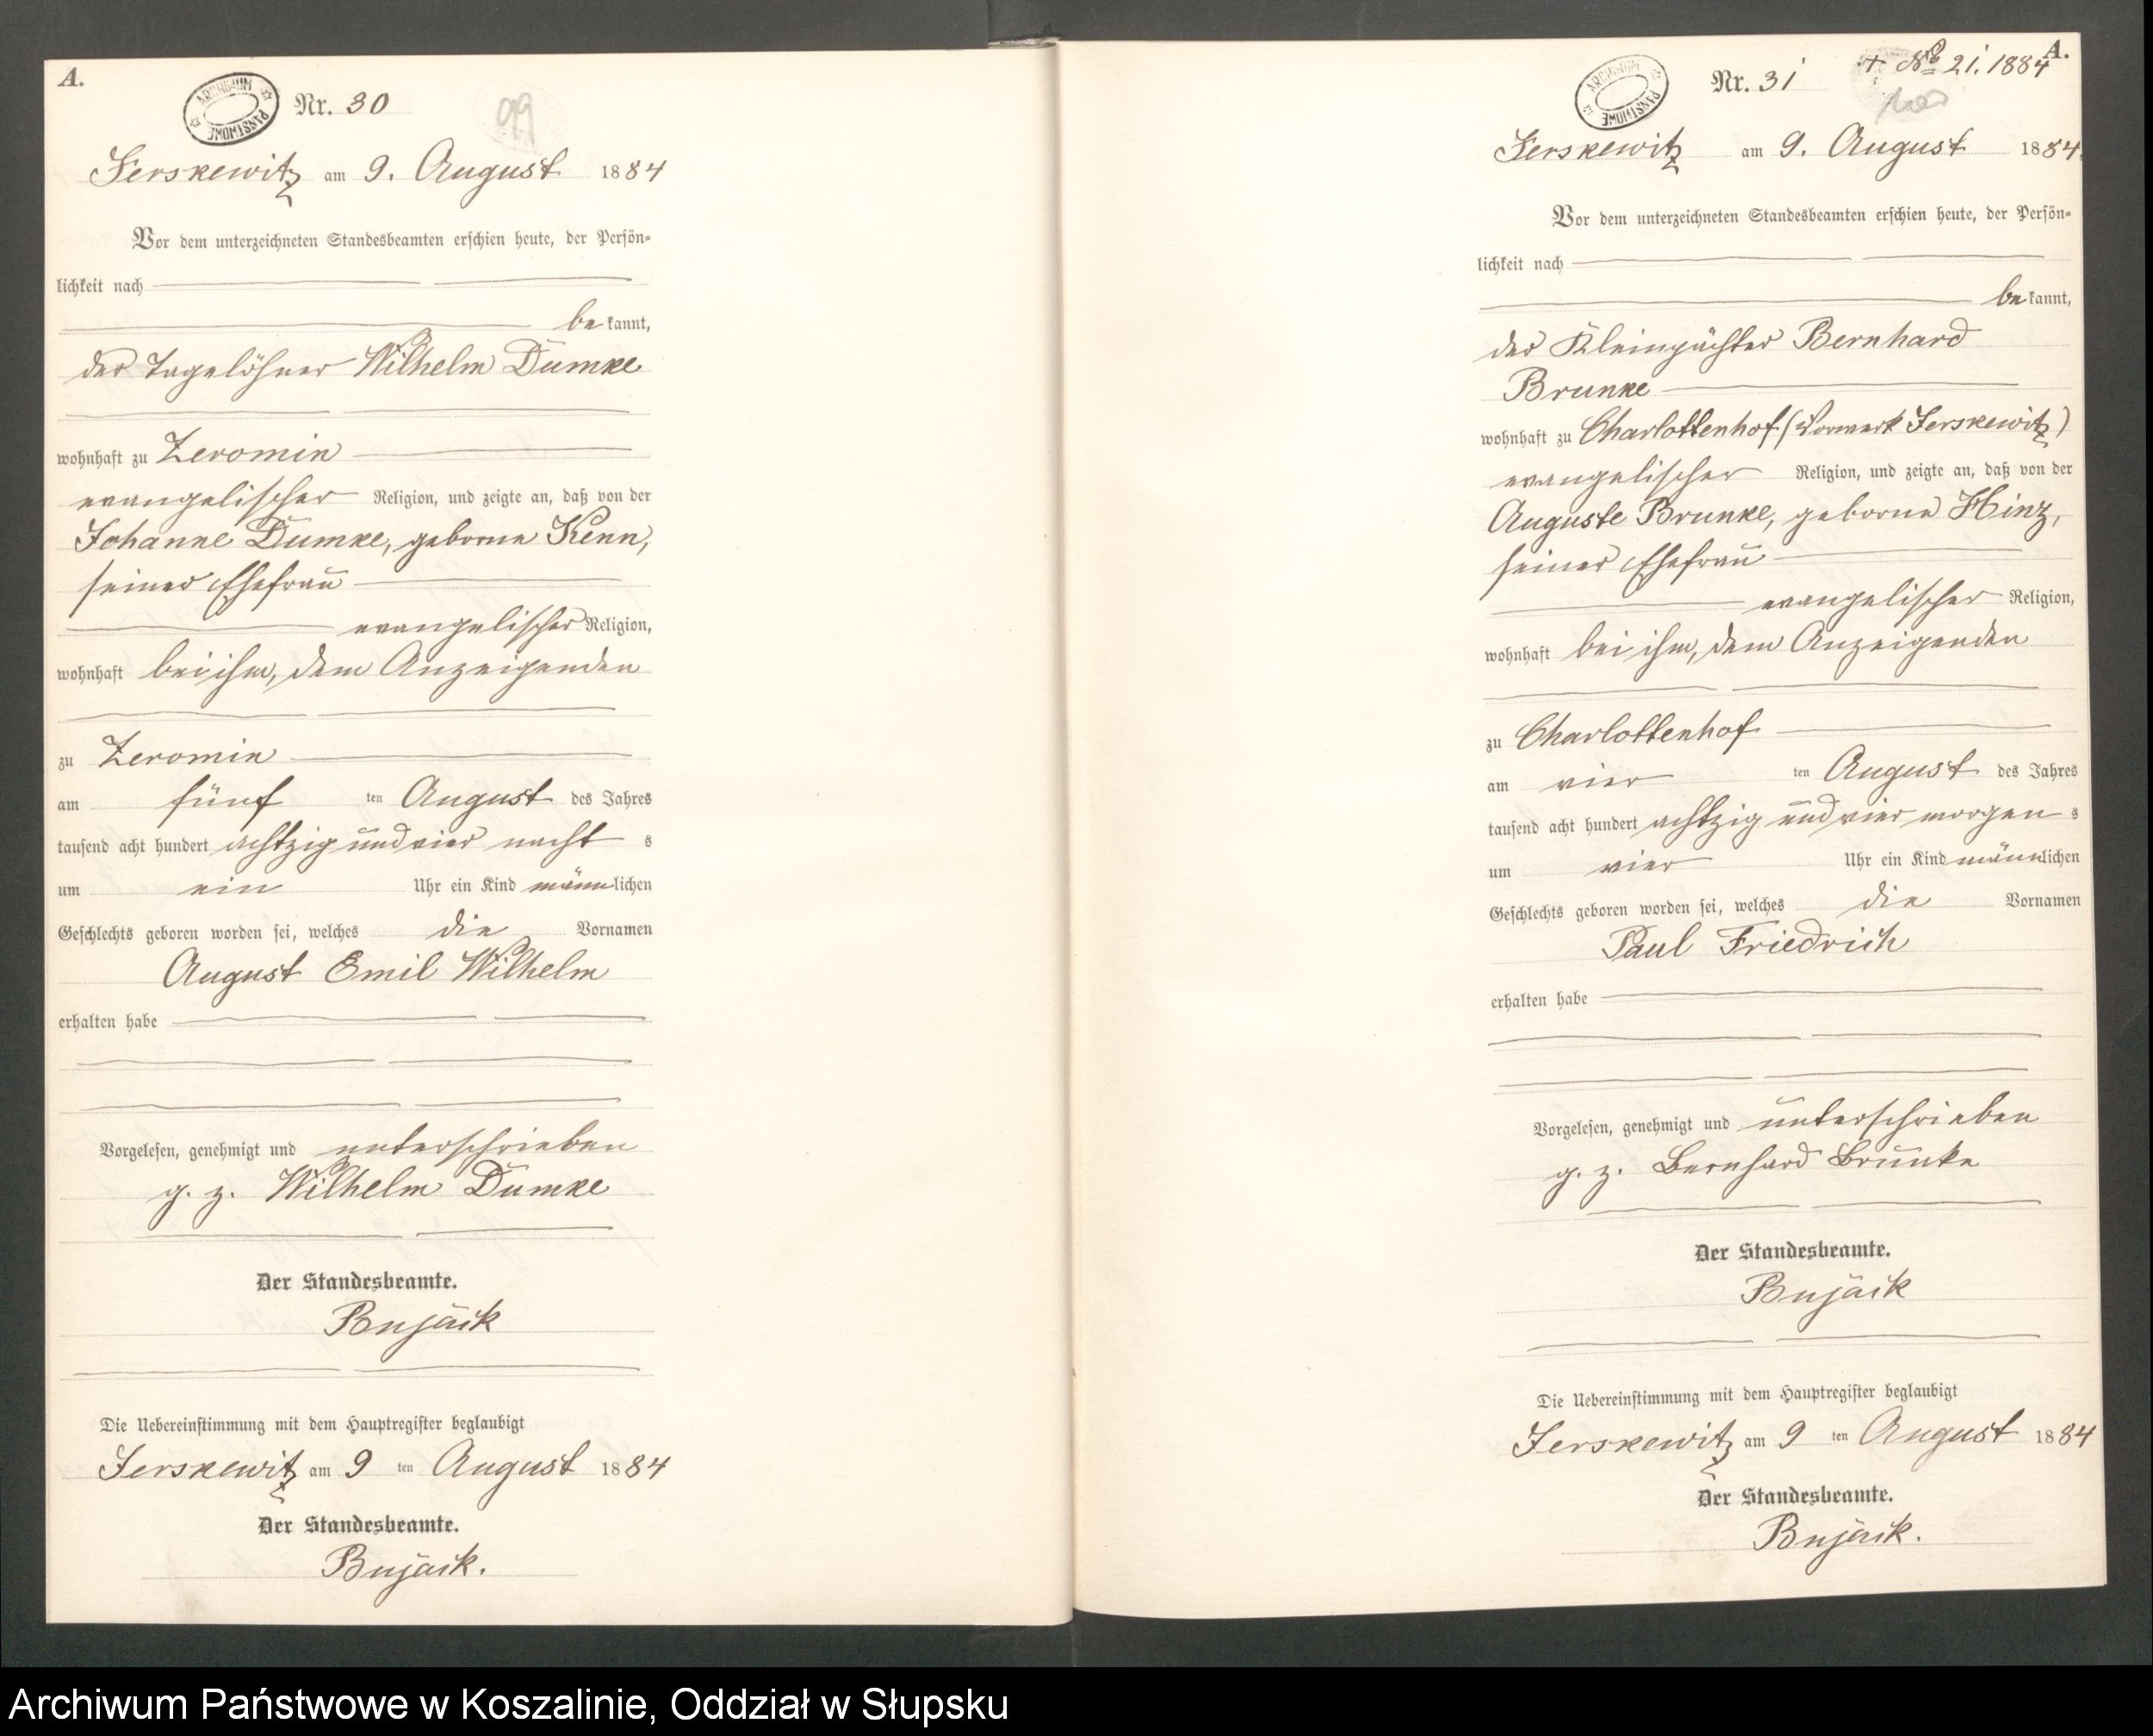 A.
ARCHIWUM PAŃSTWOWE
Nr. 30
99
Jerskewitz am 9. August 1884
Vor dem unterzeichneten Standesbeamten erschien heute, der Persön-
lichkeit nach
bekannt,
der Tagelöhner Wilhelm Dumke
wohnhaft zu Zeromin
evangelischer Religion, und zeigte an, daß von der
Johanne Dumke, geborne Kenn,
seiner Ehefrau
evangelischer Religion,
wohnhaft bei ihm, dem Anzeigenden
zu Zeromin
am fünf ten August des Jahres
tausend acht hundert achtzig und vier nacht s
um ein Uhr ein Kind männlichen
Geschlechts geboren worden sei, welches die Vornamen
August Emil Wilhelm
erhalten habe
Vorgelesen, genehmigt und unterschrieben
g. z. Wilhelm Dumke
Der Standesbeamte.
Bujack
Die Uebereinstimmung mit dem Hauptregister beglaubigt
Jerskewitz am 9 ten August 1884
Der Standesbeamte.
Bujack.
A.
ARCHIWUM PAŃSTWOWE
Nr. 31
+ No 21. 1884
100
Jerskewitz am 9. August 1884
Vor dem unterzeichneten Standesbeamten erschien heute, der Persön-
lichkeit nach
bekannt,
der Kleinpächter Bernhard
Brunke
wohnhaft zu Charlottenhof (Vorwerk Jerskewitz)
evangelischer Religion, und zeigte an, daß von der
Auguste Brunke, geborne Hinz,
seiner Ehefrau
evangelischer Religion,
wohnhaft bei ihm, dem Anzeigenden
zu Charlottenhof
am vier ten August des Jahres
tausend acht hundert achtzig und vier morgen s
um vier Uhr ein Kind männlichen
Geschlechts geboren worden sei, welches die Vornamen
Paul Friedrich
erhalten habe
Vorgelesen, genehmigt und unterschrieben
g. z. Bernhard Brunke
Der Standesbeamte.
Bujack
Die Uebereinstimmung mit dem Hauptregister beglaubigt
Jerskewitz am 9 ten August 1884
Der Standesbeamte.
Bujack.
Archiwum Państwowe w Koszalinie, Oddział w Słupsku